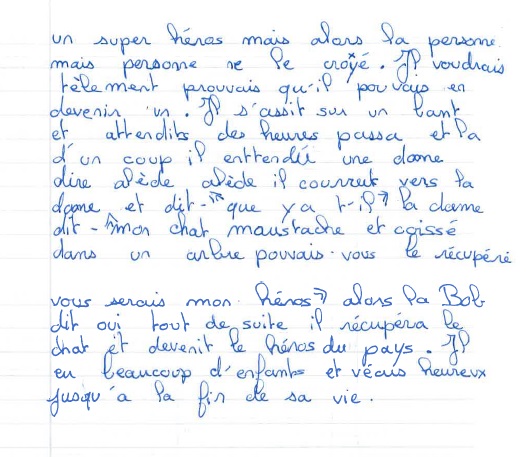 un super héros mais alors la personne
mais personne ne le croyé. Il voudrais
tèlement prouvais qu'il pouvais en
devenir un. Il s'assit sur un bant
et attendits des heures passa et la
d'un coup il enttendit une dame
dire alède alède il courrut vers la
dame et dit - "que y a t-il" la dame
dit - "mon chat maustache et coissé
dans un arbre pouvais-vous le récupéré
vous serais mon héros" alors la Bob
dit oui tout de suite il récupéra le
chat et devenit le héros du pays. Il
eu beaucoup d'enfants et vécais heureux
jusqu'a la fin de sa vie.